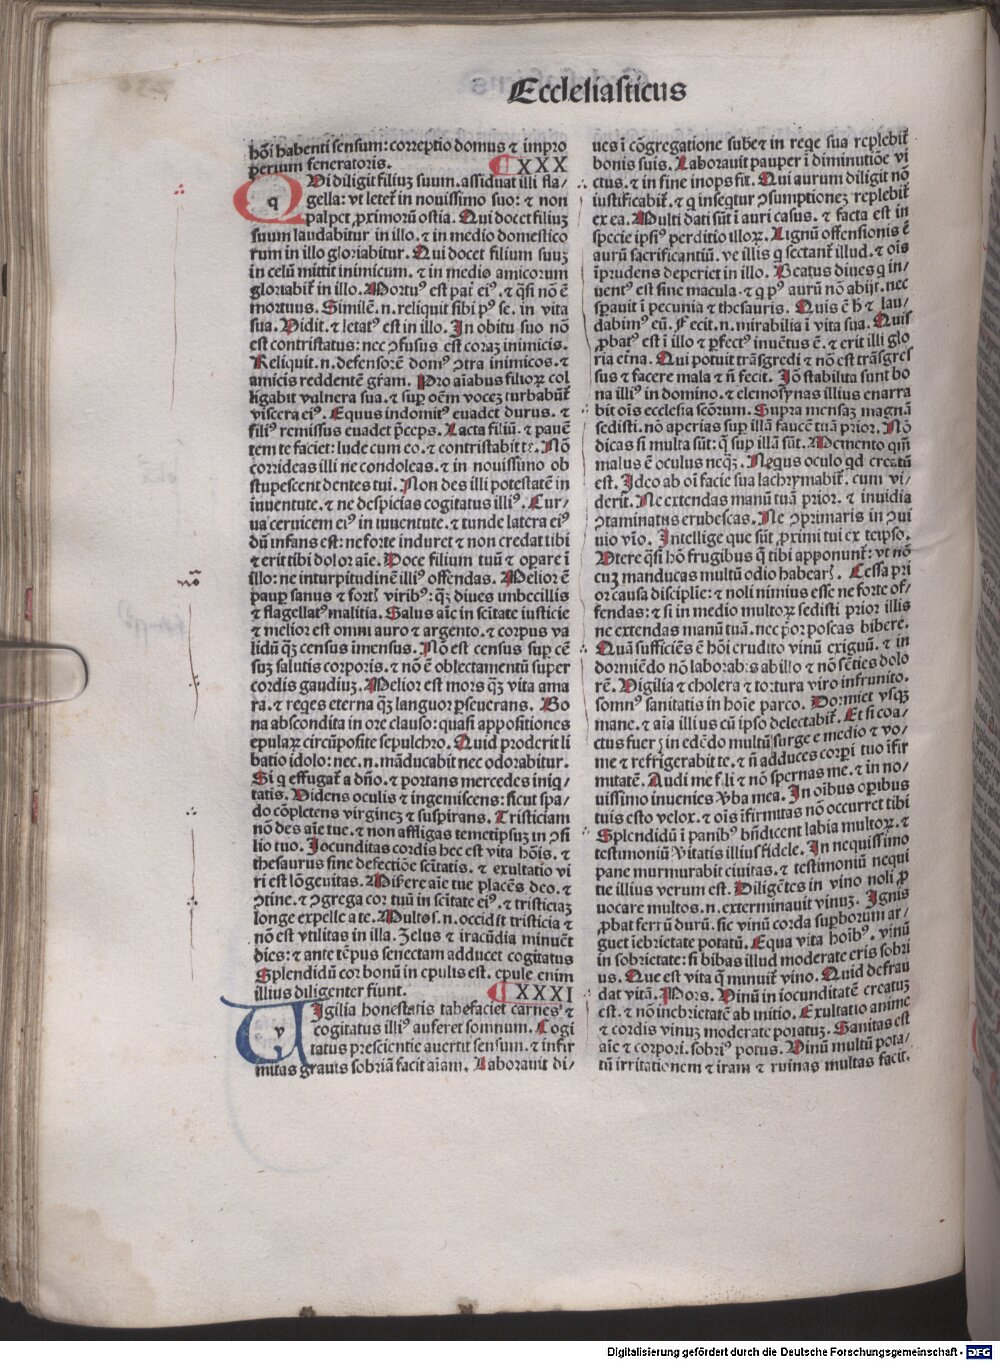 Ecclesiasticus
hōi habenti sensum: correptio domus ⁊ impro
perium feneratoris. XXX
QVi diligit filiuꝫ suum. assiduat illi fla/
gella: vt leteť in nouissimo suo: ⁊ non
palpet ꝓximorū ostia. Qui docet filiuꝫ
suum laudabitur in illo. ⁊ in medio domestico
rum in illo gloriabitur. Qui docet filium suuꝫ
in celū mittit inimicum. ⁊ in medio amicorum
gloriabiť in illo. Mortuꝰ est pať eiꝰ. ⁊ q̄si nō ē
mortuus. Similē .n. reliquit sibi pꝰ se. in vita
sua. Vidit. ⁊ letatꝰ est in illo. In obitu suo nō
est contristatus: nec ꝯfusus est coraꝫ inimicis.
Reliquit .n. defensorē domꝰ ꝯtra inimicos. ⁊
amicis reddentē gr̄am. Pro aīabus filioꝝ col
ligabit vulnera sua. ⁊ suꝑ oēm voceꝫ turbabūť
viscera eiꝰ. Equus indomitꝰ euadet durus. ⁊
filiꝰ remissus euadet p̄ceps. Lacta filiū. ⁊ pauē
tem te faciet: lude cum eo. ⁊ contristabit te. Nō
corrideas illi ne condoleas. ⁊ in nouissimo ob
stupescent dentes tui. Non des illi potestatē in
iuuentute. ⁊ ne despicias cogitatus illiꝰ. Cur/
ua ceruicem eiꝰ in iuuentute. ⁊ tunde latera eiꝰ
dū infans est: ne forte induret ⁊ non credat tibi
⁊ erit tibi dolor aīe. Doce filium tuū ⁊ opare ī
illo: ne in turpitudinē illiꝰ offendas. Melior ē
pauꝑ sanus ⁊ fortꝭ viribꝰ: qꝫ diues imbecillis
⁊ flagellatꝰ malitia. Salus aīe in scitate iusticie
⁊ melior est omni auro ⁊ argento. ⁊ corpus va
lidū qꝫ census imensus. Nō est census suꝑ cē
suꝫ salutis corporis. ⁊ nō ē oblectamentū super
cordis gaudiuꝫ. Melior est mors qꝫ vita ama
ra. ⁊ reqes eterna qꝫ languor ꝑseuerans. Bo
na abscondita in ore clauso: quasi appositiones
epulaꝝ circūposite sepulchro. Quid proderit li
batio idolo: nec .n. māducabit nec odorabitur.
Si q effugať a dn̄o. ⁊ portans mercedes iniq/
tatis. Videns oculis ⁊ ingemiscens: sicut spa/
do cōplectens virgineꝫ ⁊ suspirans. Tristiciam
nō des aīe tue. ⁊ non affligas temetipsuꝫ in ꝯsi
lio tuo. Iocunditas cordis hec est vita hōis. ⁊
thesaurus sine defectiōe scītatis. ⁊ exultatio vi
ri est lōgeuitas. Miserere aīe tue placēs deo. ⁊
ꝯtine. ⁊ ꝯgrega cor tuū in scitate eiꝰ. ⁊ tristiciaꝫ
longe expelle a te. Multos .n. occidit tristicia ⁊
nō est vtilitas in illa. Zelus ⁊ iracūdia minuēt
dies: ⁊ ante tēpus senectam adducet cogitatus
Splendidū cor bonū in epulis est. epule enim
illius diligenter fiunt. XXXI
VIgilia honestatis tabefaciet carnes. ⁊
cogitatus illiꝰ auferet somnum. Cogi
tatus prescientie auertit sensum. ⁊ infir
mitas grauis sobriā facit aīam. Laborauit di/
ues ī cōgregatione sube ⁊ in reqe sua replebiť
bonis suis. Laborauit pauper ī diminutiōe vi
ctus. ⁊ in fine inops fit. Qui aurum diligit nō
iustificabiť. ⁊ q insequť ꝯsumptioneꝫ replebiť
ex ea. Multi dati sūt ī auri casus. ⁊ facta est in
specie ipsiꝰ perditio illoꝝ. Lignū offensionis ē
aurū sacrificantiū. ve illis q sectanť illud. ⁊ oīs
īprudens deperiet in illo. Beatus diues q in/
uentꝰ est sine macula. ⁊ q pꝰ aurū nō abijt. nec
sꝑauit ī pecunia ⁊ thesauris. Quis ē h̄ ⁊ lau/
dabimꝰ eū. Fecit .n. mirabilia ī vita sua. Quis
ꝓbatꝰ est ī illo ⁊ ꝑfectꝰ inuētus ē. ⁊ erit illi glo
ria etna. Qui potuit trāsgredi ⁊ nō est trāsgres
sus ⁊ facere mala ⁊ n̄ fecit. Iō stabilita sunt bo
na illiꝰ in domino. ⁊ elemosynas illius enarra
bit oīs ecclesia scōrum. Supra mensaꝫ magnā
sedisti. nō aperias suꝑ illā faucē tuā prior. Nō
dicas si multa sūt: q̄ suꝑ illā sūt. Memento qm̄
malus ē oculus neqꝫ. Nequs oculo qd creatū
est. Ideo ab oī facie sua lachrymabiť. cum vi/
derit. Ne extendas manū tuā prior. ⁊ inuidia
ꝯtaminatus erubescas. Ne ꝯprimaris in ꝯui
uio vīo. Intellige que sūt ꝓximi tui ex teipso.
Vtere q̄si hō frugibus q̄ tibi apponunť: vt nō
cuꝫ manducas multū odio habearꝭ. Cessa pri
or causa disciplīe: ⁊ noli nimius esse ne forte of/
fendas: ⁊ si in medio multoꝝ sedisti prior illis
ne extendas manū tuā. nec p̄or poscas bibere.
Quā sufficiēs ē hōi erudito vinū exiguū. ⁊ in
dormiēdo nō laborabꝭ ab illo ⁊ nō sēties dolo
rē. Vigilia ⁊ cholera ⁊ tortura viro infrunito.
somnꝰ sanitatis in hoīe parco. Dormiet vsqꝫ
mane. ⁊ aīa illius cū ipso delectabiť. Et si coa/
ctus fuerꝭ in edēdo multū surge e medio ⁊ vo/
me ⁊ refrigerabit te. ⁊ n̄ adduces corꝑi tuo īfir
mitatē. Audi me fili ⁊ nō spernas me. ⁊ in no/
uissimo inuenies v̄ba mea. In oībus oꝑibus
tuis esto velox. ⁊ oīs īfirmitas nō occurret tibi
Splendidū ī panibꝰ bn̄dicent labia multoꝝ. ⁊
testimoniū v̄itatis illius fidele. In nequissimo
pane murmurabit ciuitas. ⁊ testimoniū nequi
tie illius verum est. Diligētes in vino noli ꝓ
uocare multos .n. exterminauit vinuꝫ. Ignis
ꝓbat ferrū durū. sic vinū corda suꝑborum ar/
guet īebrietate potatū. Equa vita hoībꝰ. vinū
in sobrietate: si bibas illud moderate eris sobri
us. Que est vita q̄ minuiť vino. Quid defrau
dat vitā. Mors. Vinū in iocunditatē creatuꝫ
est. ⁊ nō inebrietatē ab initio. Exultatio anime
⁊ cordis vinuꝫ moderate potatuꝫ. Sanitas est
aīe ⁊ corpori. sobriꝰ potus. Vinū multū pota/
tū irritationem ⁊ iram ⁊ ruinas multas facit.
Digitalisierung gefördert durch die Deutsche Forschungsgemeinschaft - DFG